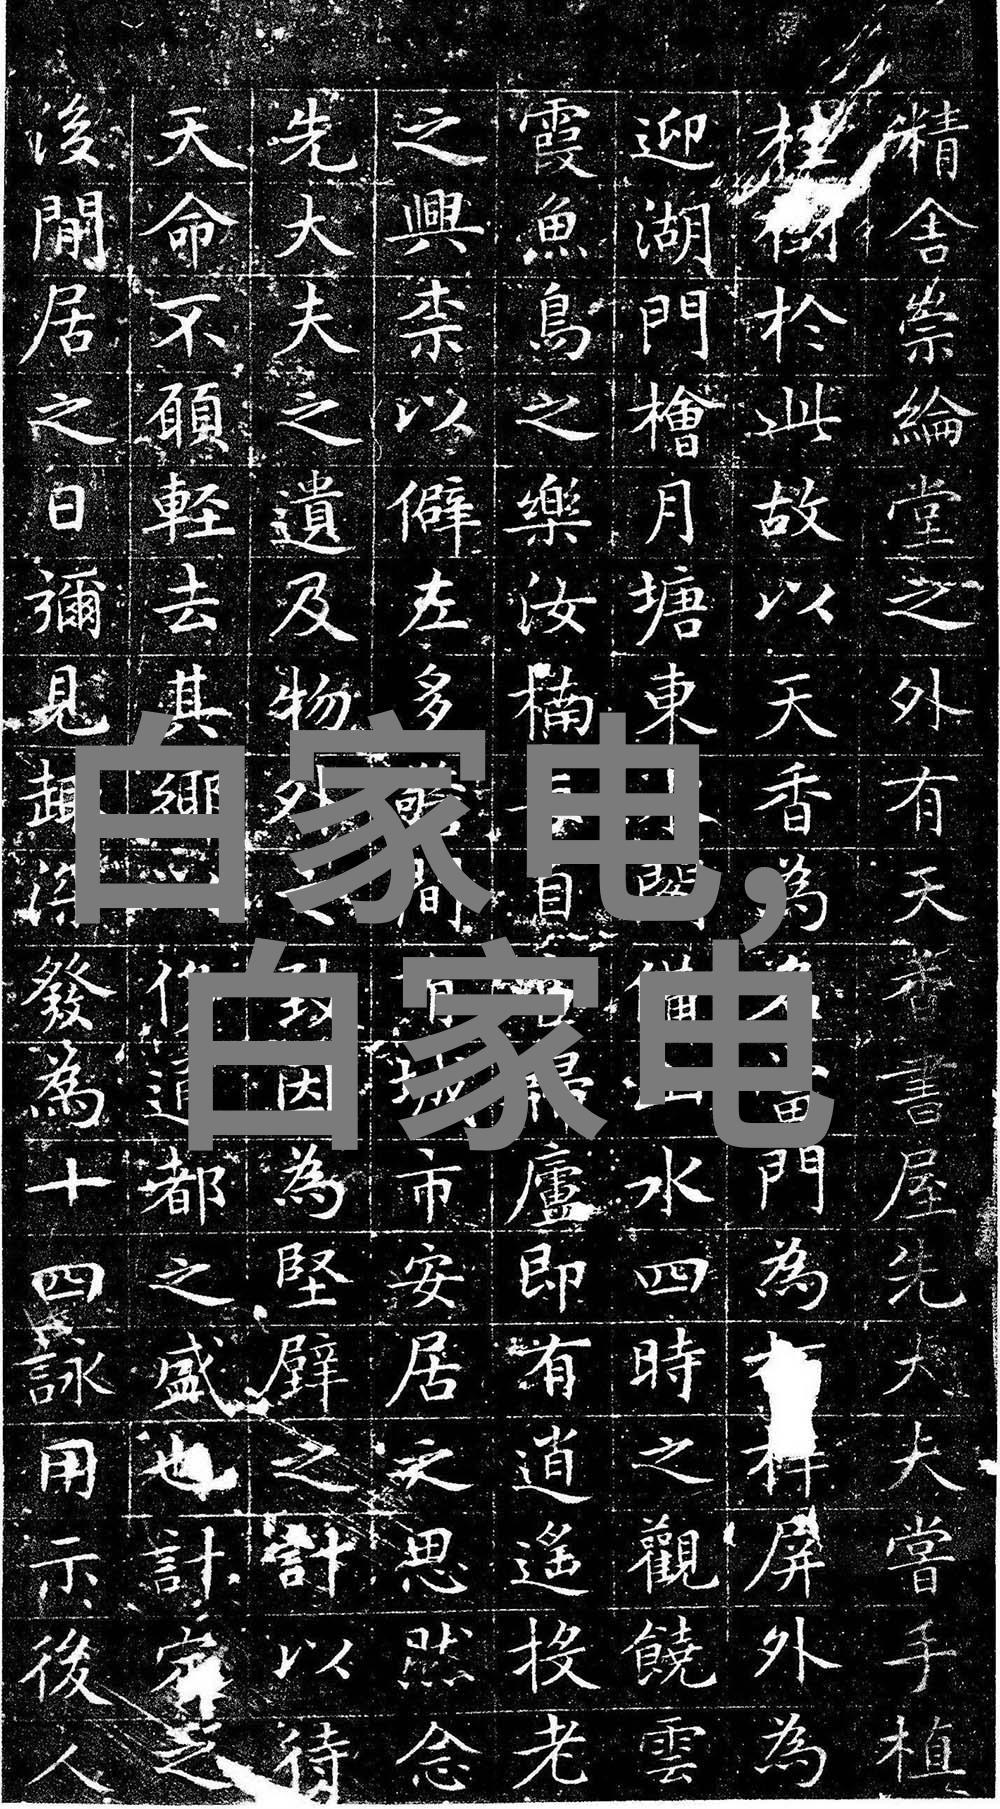 精舍崇綸堂之外有天香書屋先大夫嘗手植
桂樹於此故以天香為名當門為屏外為
迎湖門檜月塘東水閣備山水四時之觀饒雲
霞魚鳥之樂汝楠長自有歸廬即有逍遙投老
之興柰以僻左多警間有城市安居之思然念
先大夫之遺及物外之致因為堅壁之計以待
天命不願輕去其鄉以從通都之盛也計定之
後閒居之日彌見趣深發為十四詠用示後人
白家电,
白家电